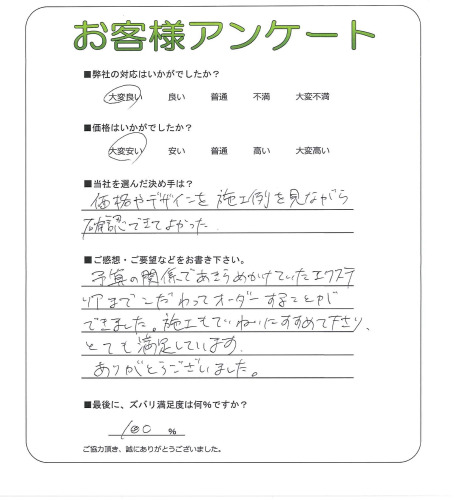 お客様アンケート
■弊社の対応はいかがでしたか？
大変良い 良い 普通 不満 大変不満
■価格はいかがでしたか？
大変安い 安い 普通 高い 大変高い
■当社を選んだ決め手は？
価格やデザインを施工例を見ながら
確認できてよかった
■ご感想・ご要望などをお書き下さい。
予算の関係であきらめかけていたエクステ
リアまでこだわってオーダーすることが
できました。施工もていねいにすすめて下さり、
とても満足しています。
ありがとうございました。
■最後に、ズバリ満足度は何%ですか？
100 %
ご協力頂き、誠にありがとうございました。